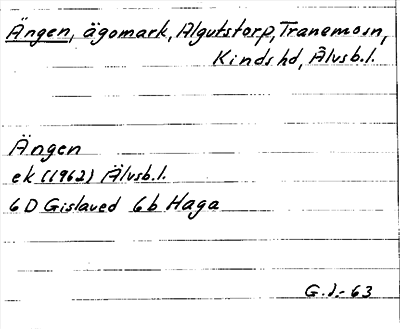 Ängen, ägomark, Algutstorp, Tranemo sn,
Kinds hd, Älvsb. l.
Ängen
ek (1962) Älvsb. l.
6D Gislaved 6b Haga
G.J.-63